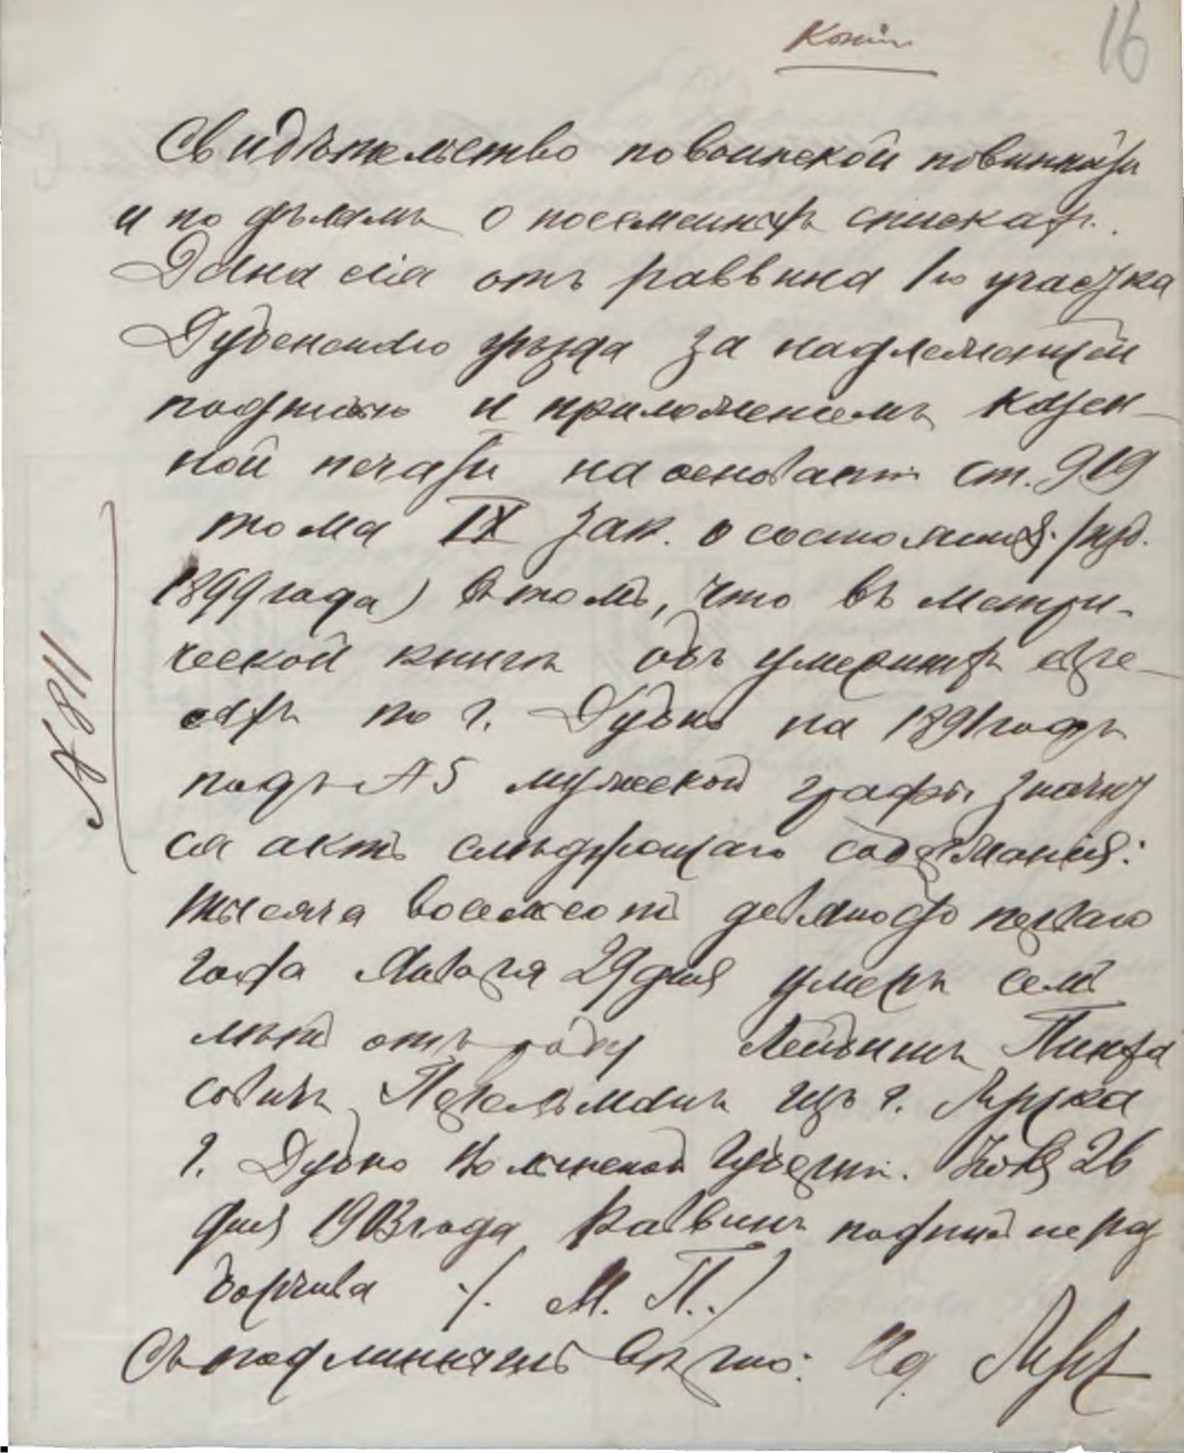 Копія
16
Свидѣтельство по воинской повинности
и по дѣламъ о посемейныхъ спискахъ.
Дана сія отъ раввина 1го участка
Дубенскаго уѣзда за надлежащей
подписью и приложеніемъ казен-
ной печати на основаніи ст. 919
тома IX Зак. о состояніях. (изд.
1899 года) въ томъ, что въ метри-
ческой книгѣ объ умершихъ евре-
яхъ по г. Дубно на 1891 годъ
подъ № 5 мужской графы значит
ся актъ слѣдующаго содержанія:
тысяча восемьсотъ девяносто перваго
года Января 29 дня умеръ семи
лѣтъ отъ роду Лейбишъ Пинха
совичъ Перельманъ изъ г.
г. Дубно Волынской Губерніи. 26
дня 1903 года Раввинъ подпись нераз
борчива /. М. П./
Съ подлиннымъ вѣрно:
№ 811